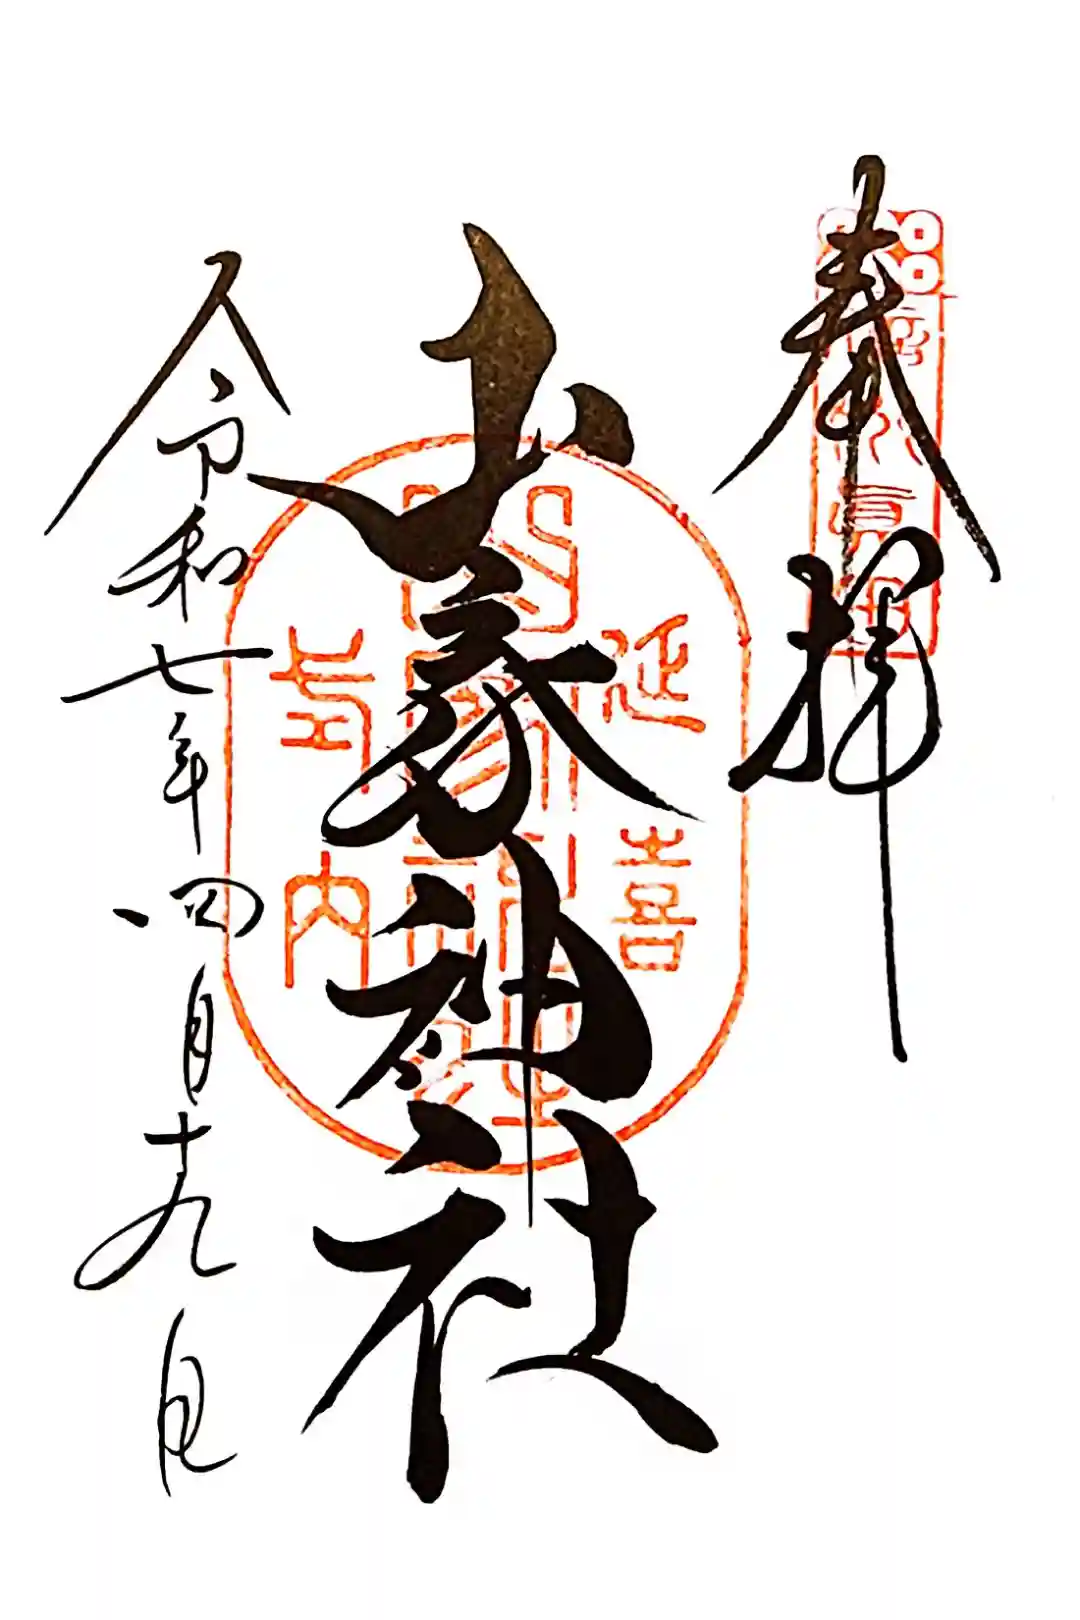 奉拝
山家神社
延喜
式内
令和七年四月十九日